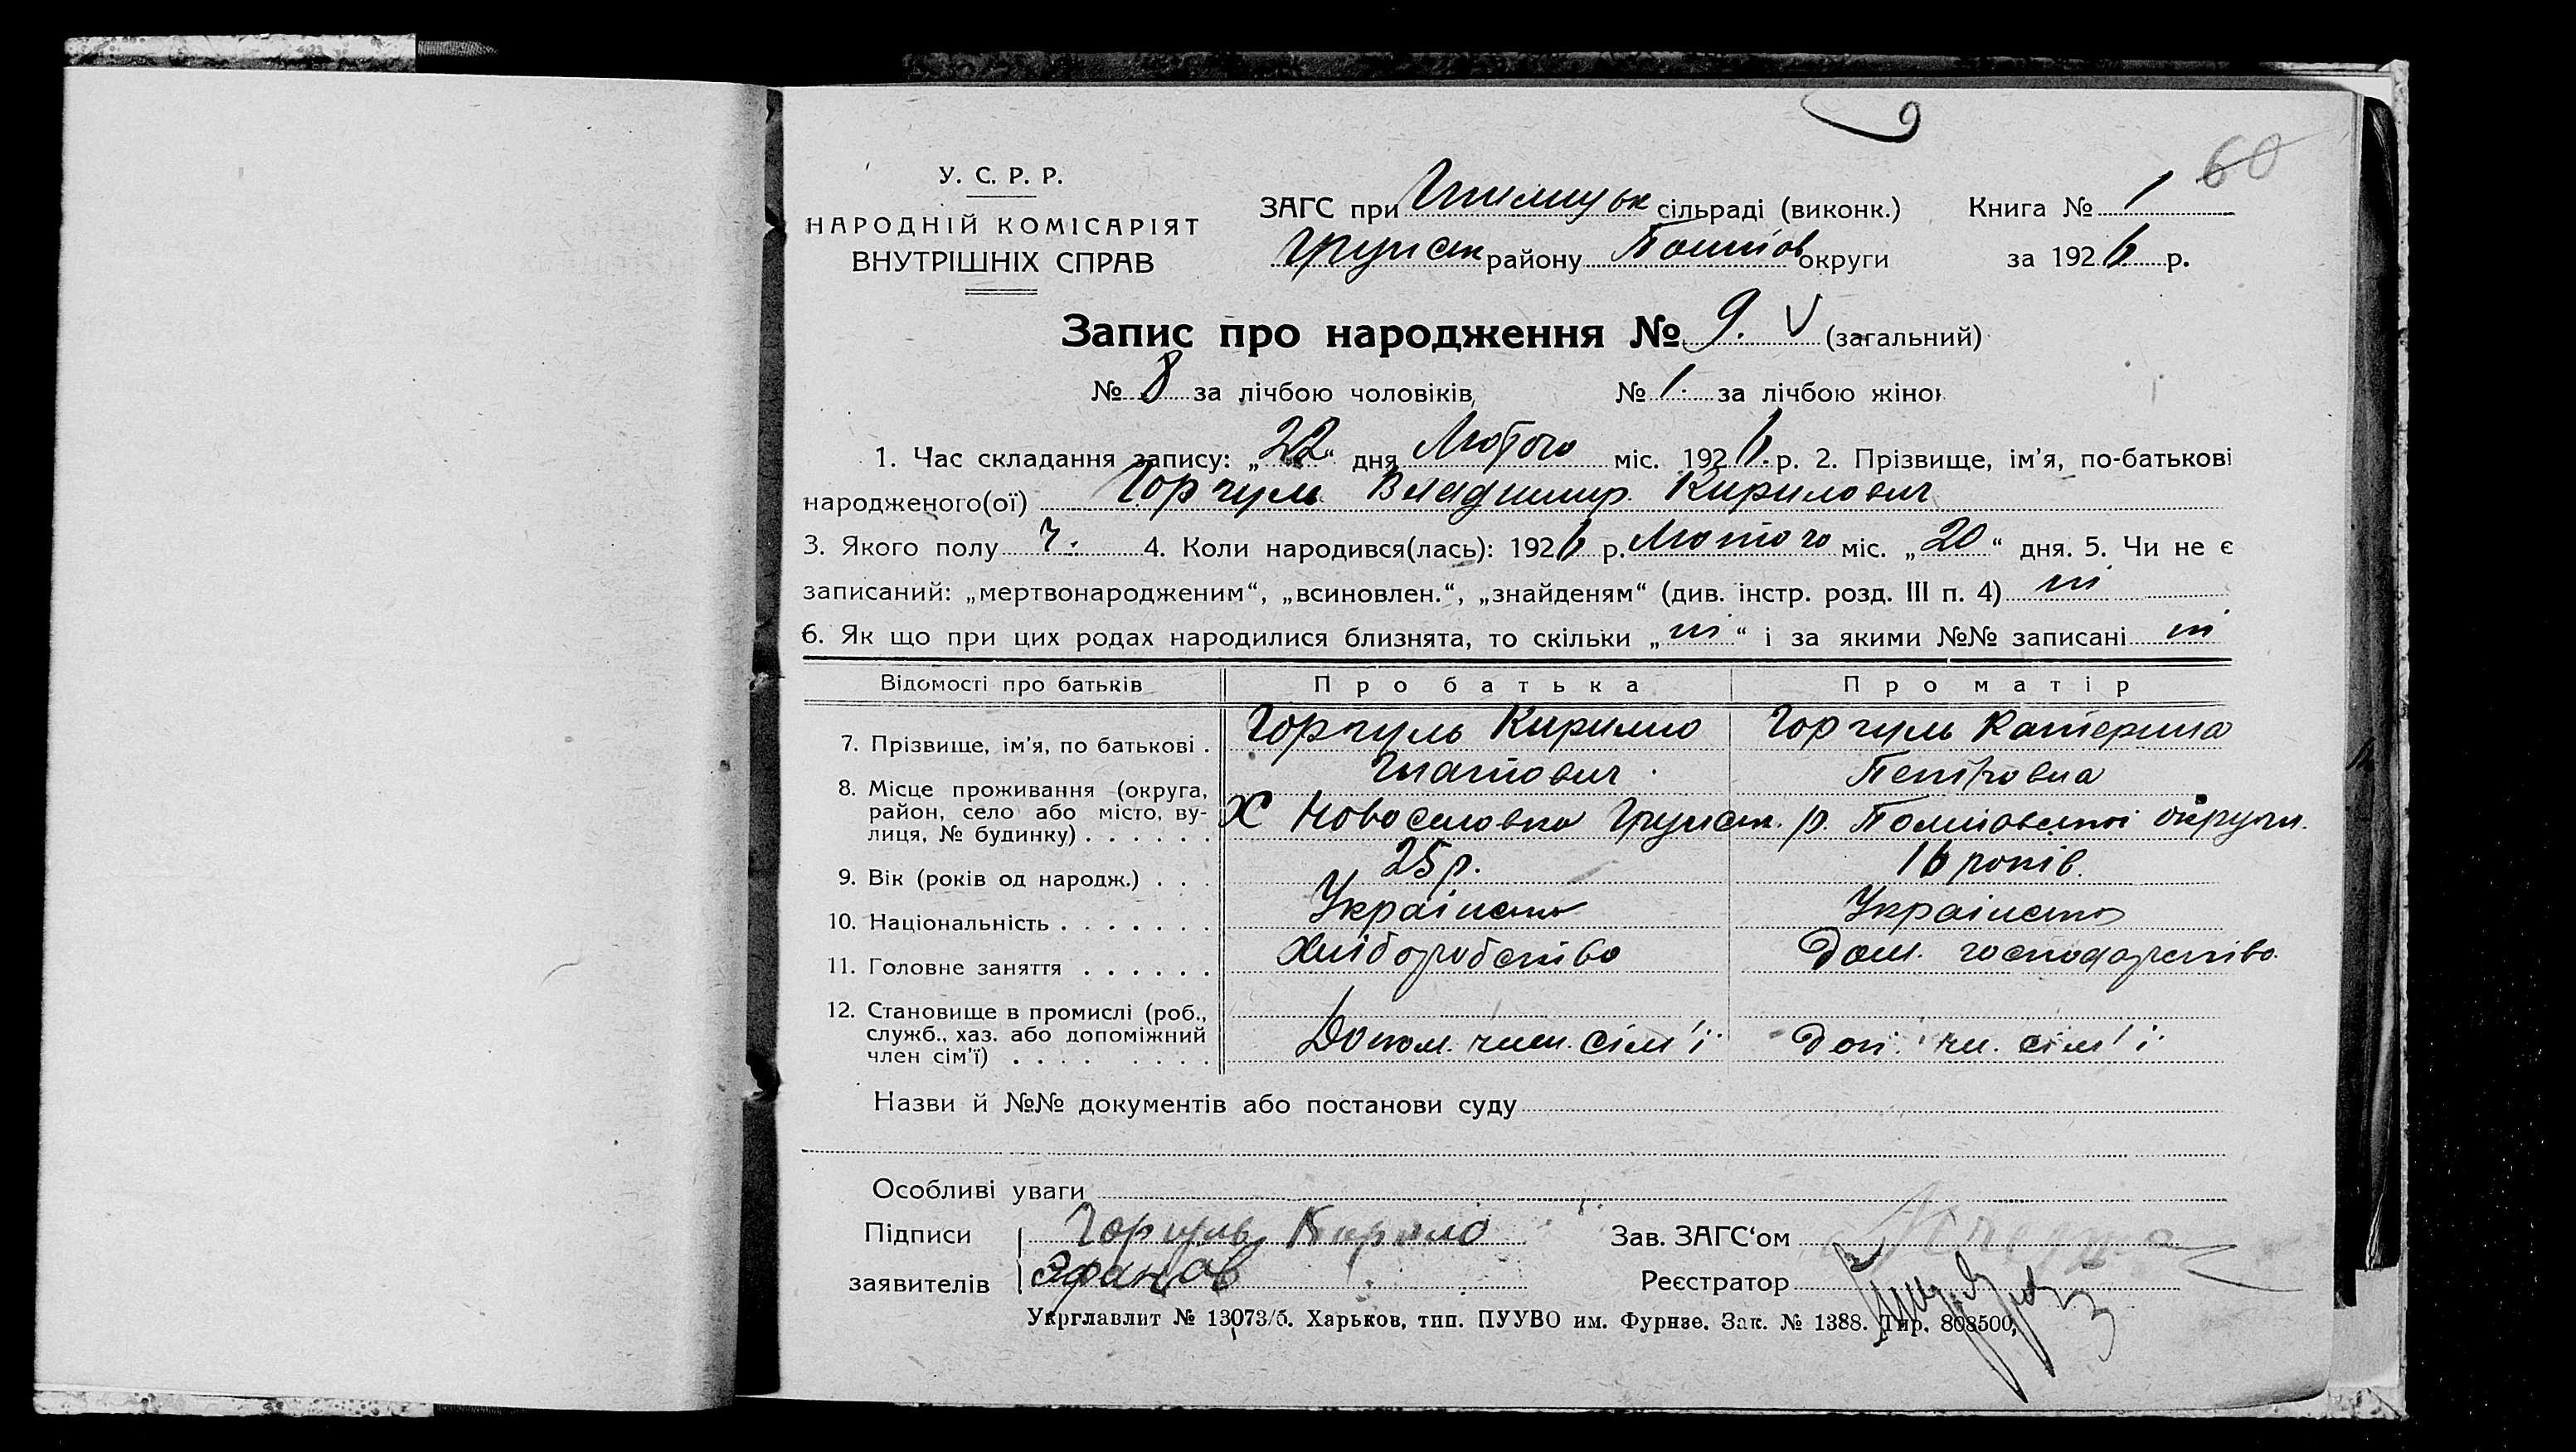 9
60
У. С. Р. Р.
НАРОДНІЙ КОМІСАРІЯТ
ВНУТРІШНІХ СПРАВ
ЗАГС при сільраді (виконк.) Книга № 1
Грунськ району Полтов округи за 1926 р.
Запис про народження № 9. V (загальний)
№ 8 за лічбою чоловіків № 1. за лічбою жінок
1. Час складання запису: „22“ дня Лютого міс. 1926 р. 2. Прізвище, ім'я, по-батькові
народженого(ої) Горгуль Владимир Кирилович
3. Якого полу ч. 4. Коли народився(лась): 1926 р. Лютого міс. „20“ дня. 5. Чи не є
записаний: „мертвонародженим“, „всиновлен.“, „знайденям“ (див. інстр. розд. III п. 4) ні
6. Як що при цих родах народилися близнята, то скільки „ні“ і за якими №№ записані ні
Відомості про батьків Про батька Про матір
7. Прізвище, ім'я, по батькові . Горгуль Кирило Гнатович Горгуль Катерина Петровна
8. Місце проживання (округа,
район, село або місто, ву-
лиця, № будинку) . . . . . . Х Новоселовка Грунськ. р. Полтавської округи.
9. Вік (років од народж.) . . . 25 р. 16 років.
10. Національність . . . . . . .
11. Головне заняття . . . . . . Хліборобство Дом. господарство
12. Становище в промислі (роб.,
служб., хаз. або допоміжний
член сім'ї) . . . . . . . . Допом. член. сім'ї Доп. чл. сім'ї
Назви й №№ документів або постанови суду
Особливі уваги
Підписи Горгуль Кирило Зав. ЗАГС‘ом
заявителів Реєстратор
Укрглавлит № 13073/б. Харьков, тип. ПУУВО им. Фрунзе. Зак. № 1388. Тир. 808500,